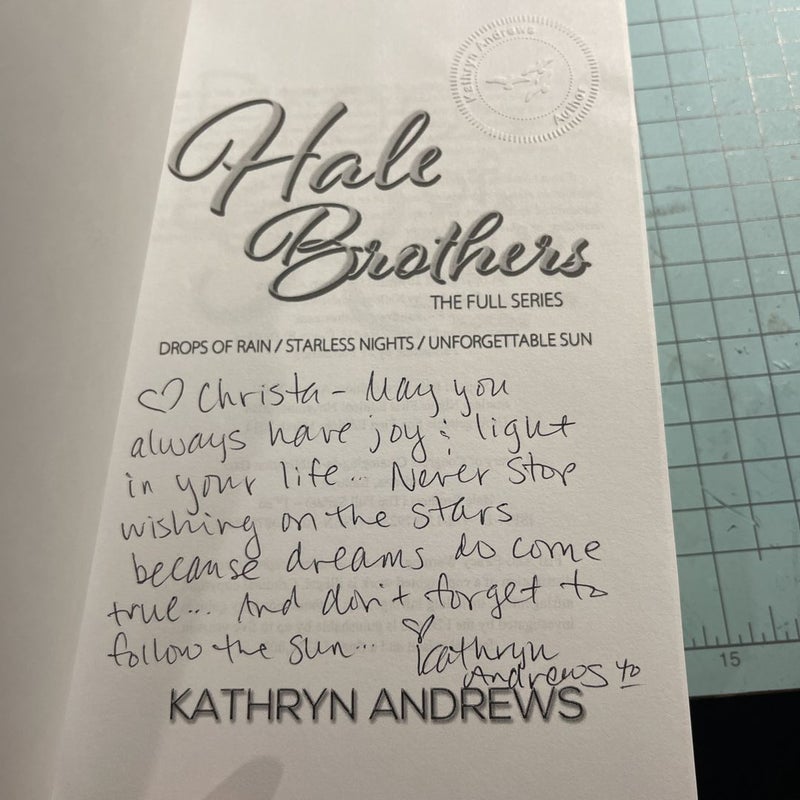 Kathryn Andrews
Author
Hale
Brothers
THE FULL SERIES
DROPS OF RAIN / STARLESS NIGHTS / UNFORGETTABLE SUN
♡ Christa - May you
always have joy & light
in your life... Never stop
wishing on the stars
because dreams do come
true... And don't forget to
follow the sun...
♡ Kathryn
Andrews
KATHRYN ANDREWS
15